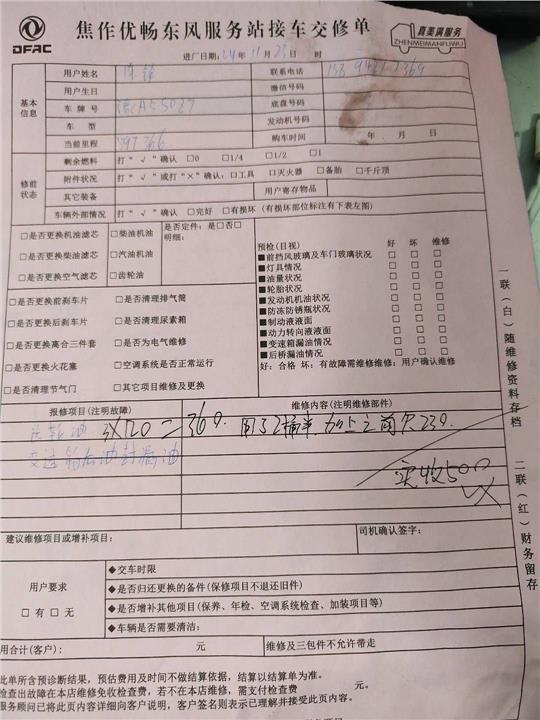 DFAC
焦作优畅东风服务站接车交修单
真美满服务
ZHENMEIMANFUWU
进厂日期: 24年11月23日 时
基本信息
用户姓名 联系电话
用户生日 微信号码
车牌号 底盘号
车型 发动机号码
当前里程 购车时间 年 月 日
修前状态
剩余燃料 打“√”确认 □0 □1/4 □1/2 □1
附件状况 打“√”或打“×”确认:□工具 □灭火器 □备胎 □千斤顶
其它装备 用户寄存物品
车辆外部情况 打“√”确认 □完好 □有损坏 (有损坏部位标注有下表左图)
□是否更换机油滤芯 □柴油机油 是否定件: 是□否□
明细:
□是否更换柴油滤芯 □汽油机油
□是否更换空气滤芯 □齿轮油
□是否更换前刹车片 □是否清理排气筒
□是否更换后刹车片 □是否清理尿素箱
□是否更换离合三件套 □是否为电气维修
□是否更换火花塞 □空调系统是否正常运行
□是否清理节气门 □其它项目维修及更换
预检(目视) 好 坏 维修
■前挡风玻璃及车门玻璃状况 □ □ □
■灯具情况 □ □ □
■油量状况 □ □ □
■轮胎状况 □ □ □
■发动机机油状况 □ □ □
■防冻防锈瓶状况 □ □ □
■制动液液面 □ □ □
■动力转向液液面 □ □ □
■变速箱漏油情况 □ □ □
■后桥漏油情况 □ □ □
好: 合格 坏: 有故障需维修维修: 用户确认维修
报修项目(注明故障) 维修内容(注明维修部件)
齿轮油 3X120=360. 用了2桶半 加上之前欠230.
变速箱后油封漏油
实收500
VX
建议维修项目或增补项目: 司机确认签字:
用户要求
□有 □无
◆交车时限
◆是否归还更换的备件(保修项目不退还旧件)
◆是否增补其他项目(保养、年检、空调系统检查、加装项目等)
◆车辆是否需要清洁:
用合计(客户): 元 维修及三包件不允许带走
此单所含预诊断结果,预估费用及时间不做结算依据,结算以结算单为准。
检查出故障在本店维修免收检查费,若不在本店维修,需支付检查费 元。
服务顾问已将此页内容详细向客户说明,客户签名则表示已理解并接受此页内容。
一联(白)随维修资料存档
二联(红)财务留存